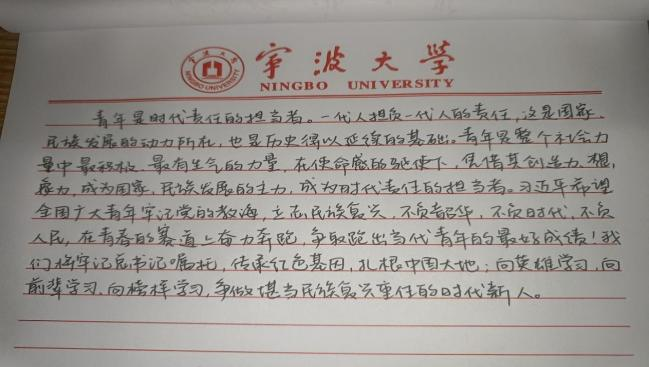 宁波大学
NINGBO UNIVERSITY
青年是时代责任的担当者。一代人担负一代人的责任，这是国家、
民族发展的动力所在，也是历史得以延续的基础。青年是整个社会力
量中最积极、最有生气的力量，在使命感的驱使下，凭借其创造力、想
象力，成为国家、民族发展的主力，成为时代责任的担当者。习近平希望
全国广大青年牢记党的教诲，立志民族复兴，不负韶华，不负时代，不负
人民，在青春的赛道上奋力奔跑，争取跑出当代青年的最好成绩！我
们将牢记总书记嘱托，传承红色基因，扎根中国大地；向英雄学习、向
前辈学习、向榜样学习，争做堪当民族复兴重任的时代新人。